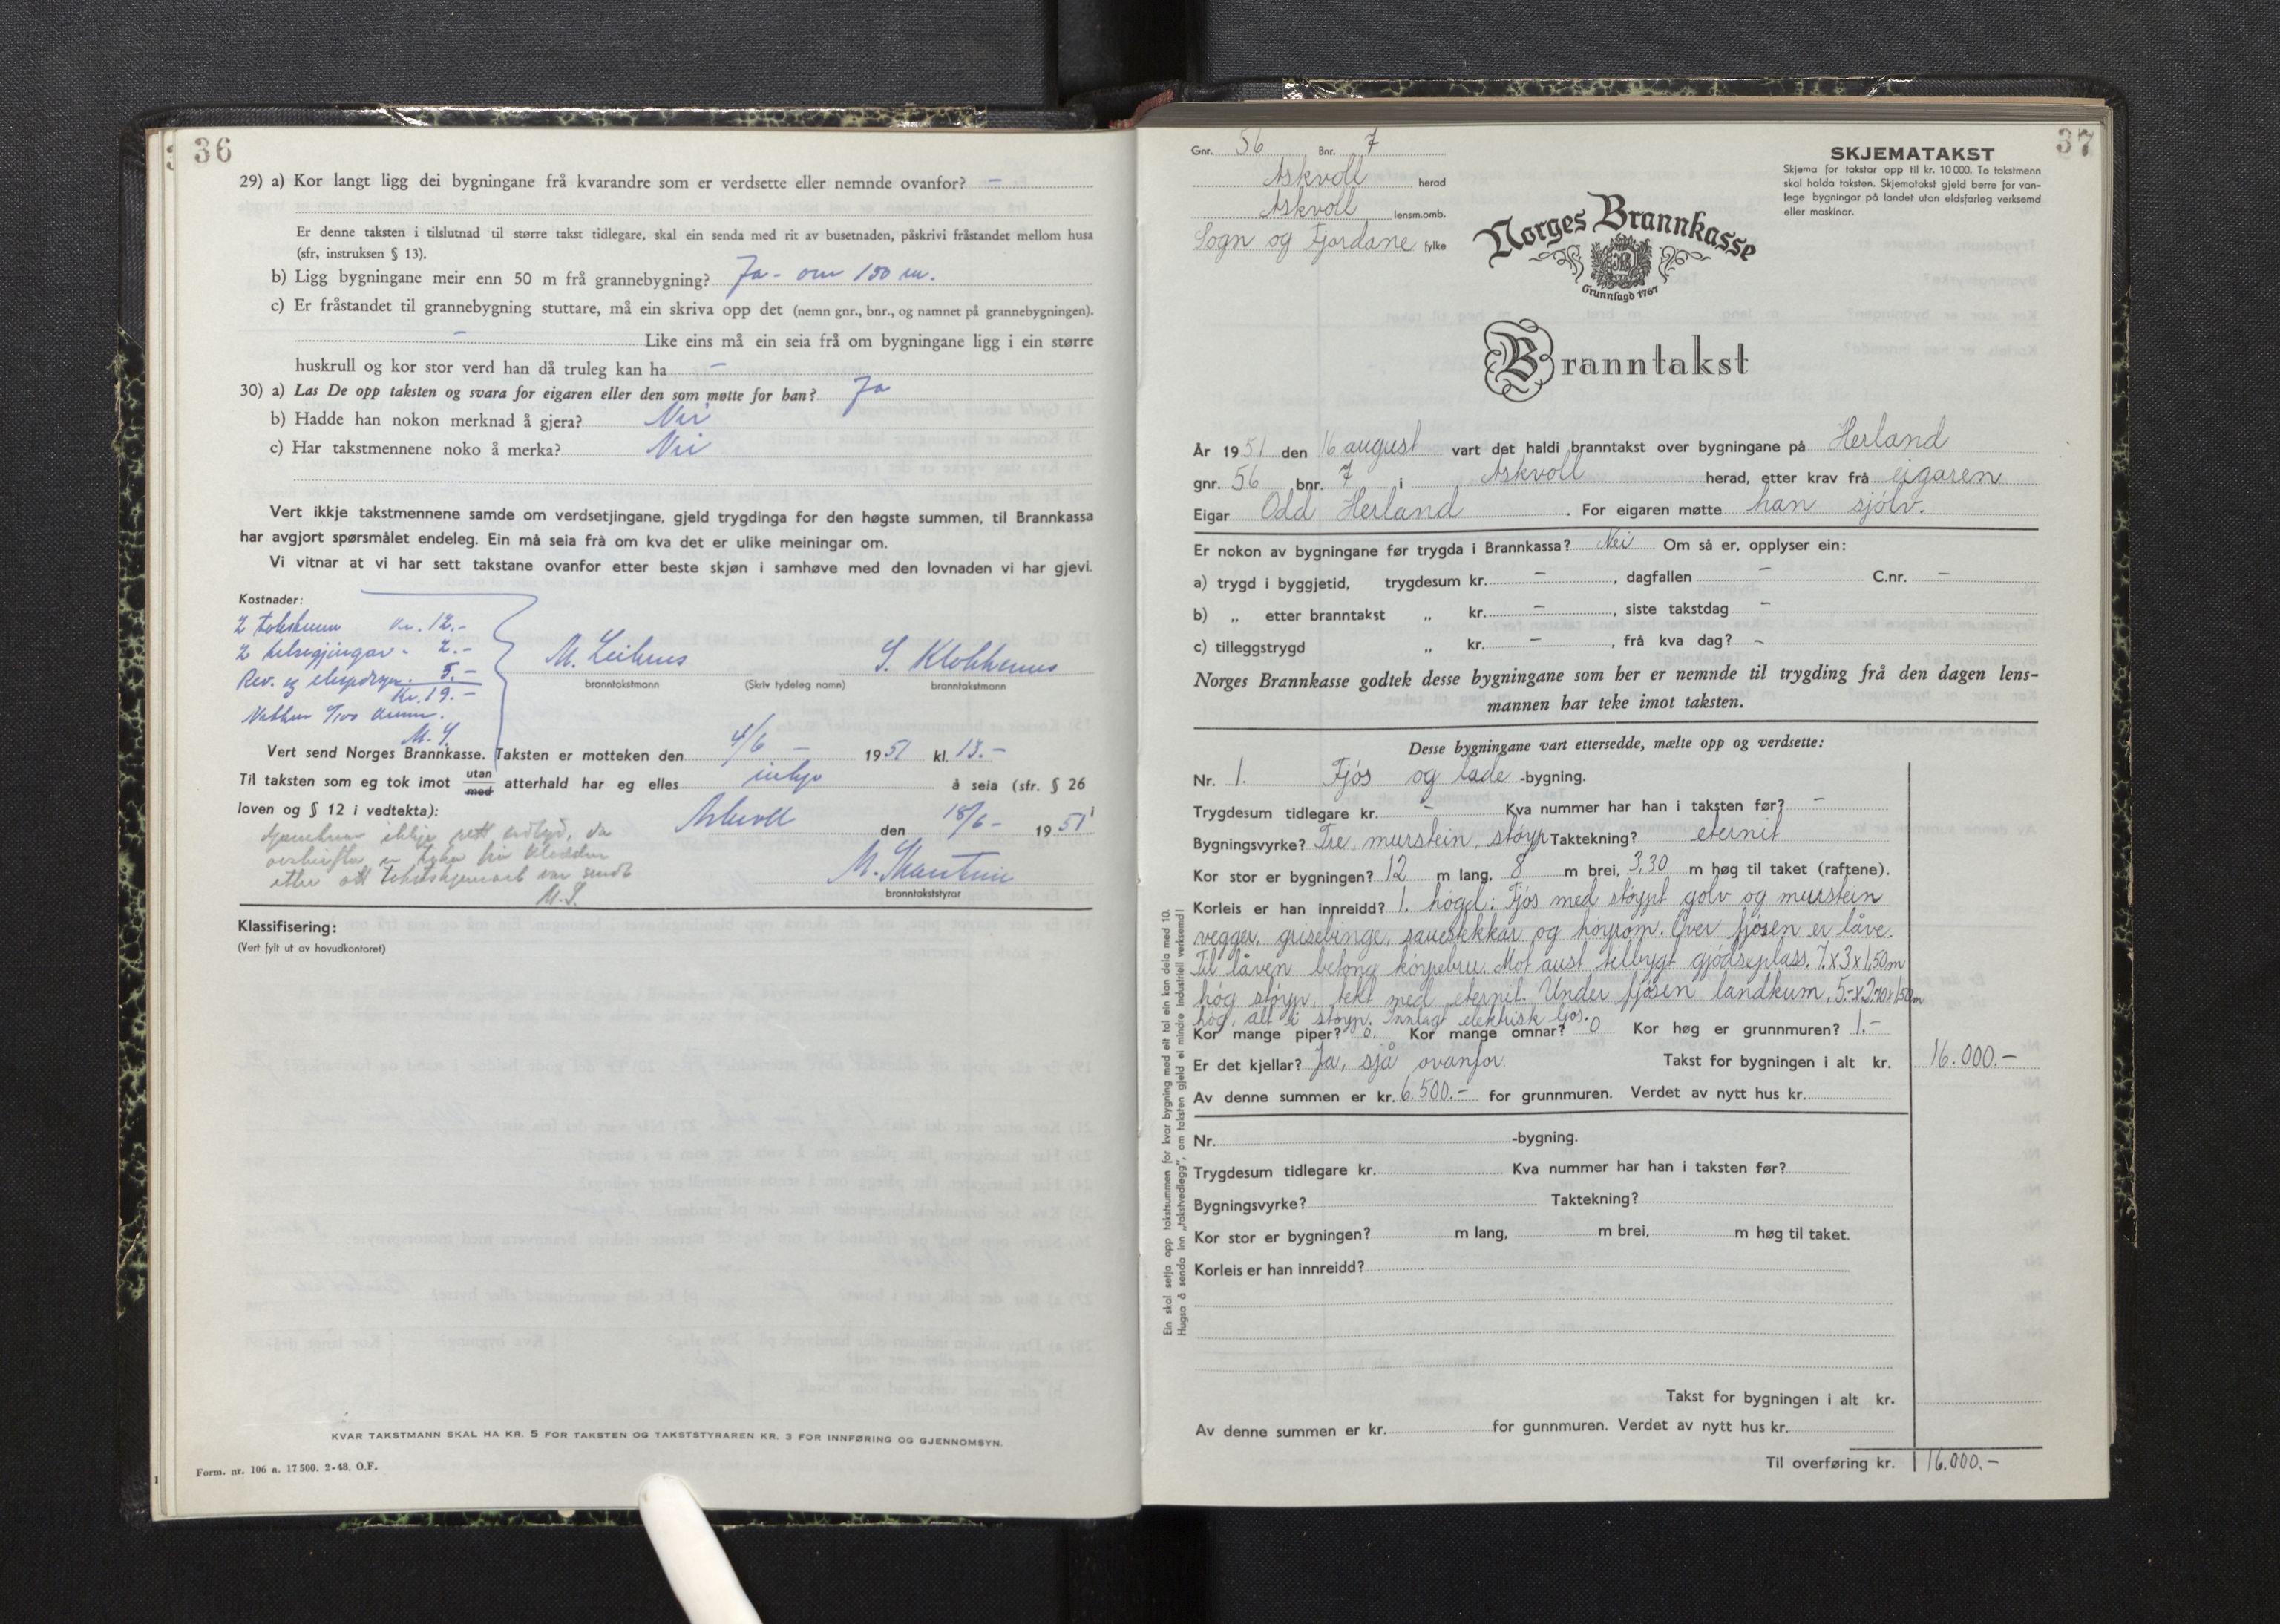 36
29) a) Kor langt ligg dei bygningane frå kvarandre som er verdsette eller nemnde ovanfor? –
Er denne taksten i tilslutnad til større takst tidlegare, skal ein senda med rit av busetnaden, påskrivi fråstandet mellom husa
(sfr, instruksen § 13).
b) Ligg bygningane meir enn 50 m frå grannebygning? Ja - om 150 m.
c) Er fråstandet til grannebygning stuttare, må ein skriva opp det (nemn gnr., bnr., og namnet på grannebygningen).
– Like eins må ein seia frå om bygningane ligg i ein større
huskrull og kor stor verd han då truleg kan ha –
30) a) Las De opp taksten og svara for eigaren eller den som møtte for han? Ja
b) Hadde han nokon merknad å gjera? Nei
c) Har takstmennene noko å merka? Nei
Vert ikkje takstmennene samde om verdsetjingane, gjeld trygdinga for den høgste summen, til Brannkassa
har avgjort spørsmålet endeleg. Ein må seia frå om kva det er ulike meiningar om.
Vi vitnar at vi har sett takstane ovanfor etter beste skjøn i samhøve med den lovnaden vi har gjevi.
Kostnader:
2 takstmenn kr. 12.-
2 - 2.-
Rev. og 5.-
Kr. 19.-
M. S.
M. Leihus S. Klokkernes
branntakstmann (Skriv tydeleg namn) branntakstmann
Vert send Norges Brannkasse. Taksten er motteken den 4/6 – 1951 kl. 13.-
Til taksten som eg tok imot utan/med atterhald har eg elles inkje å seia (sfr. § 26
loven og § 12 i vedtekta):
Askvoll den 18/6 – 1951
ikkje rett ordlyd, da
er teke frå kladden
etter att takstskjemaet var sendt
M. S.
branntakststyrar
Klassifisering:
(Vert fylt ut av hovudkontoret)
KVAR TAKSTMANN SKAL HA KR. 5 FOR TAKSTEN OG TAKSTSTYRAREN KR. 3 FOR INNFØRING OG GJENNOMSYN.
Form. nr. 106 a. 17 500. 2-48. O.F.
37
Gnr. 56 Bnr. 7
Askvoll herad
Askvoll lensm.omb.
Sogn og Fjordane fylke
SKJEMATAKST
Skjema for takstar opp til kr. 10 000. To takstmenn
skal halda taksten. Skjematakst gjeld berre for van-
lege bygningar på landet utan eldsfarleg verksemd
eller maskinar.
Norges Brannkasse
Grunnlagd 1767
Branntakst
År 1951 den 16 august vart det haldi branntakst over bygningane på Herland
gnr. 56 bnr. 7 i Askvoll herad, etter krav frå eigaren
Eigar Odd Herland. For eigaren møtte han sjølv.
Er nokon av bygningane før trygda i Brannkassa? Nei Om så er, opplyser ein:
a) trygd i byggjetid, trygdesum kr. –, dagfallen – C.nr. –
b) „ etter branntakst „ kr. –, siste takstdag –
c) tilleggstrygd „ kr. –, frå kva dag? –
Norges Brannkasse godtek desse bygningane som her er nemnde til trygding frå den dagen lens-
mannen har teke imot taksten.
Desse bygningane vart ettersedde, mælte opp og verdsette:
Nr. 1. Fjós og lade -bygning.
Trygdesum tidlegare kr. – Kva nummer har han i taksten før? –
Bygningsvyrke? Tre, murstein, støyp Taktekning? eternit
Kor stor er bygningen? 12 m lang, 8 m brei, 3,30 m høg til taket (raftene).
Korleis er han innreidd? 1. høgd: Fjós med støypt golv og murstein
vegger, grisebinge, sauestekkar og høyrom. Over fjósen er låve.
Til låven betong køyrebru. Mot aust tilbygt gjødseplass, 7 x 3 x 1,50 m
høg støyp, tekt med eternit. Under fjósen landkum, 5.- x 2.70 x 1,50 m
høg, alt i støyp. Innlagt elektrisk ljos.
Kor mange piper? 0. Kor mange omnar? 0 Kor høg er grunnmuren? 1.-
Er det kjellar? Ja, sjå ovanfor Takst for bygningen i alt kr. 16.000.-
Av denne summen er kr. 6.500.- for grunnmuren. Verdet av nytt hus kr.
Nr. -bygning.
Trygdesum tidlegare kr. Kva nummer har han i taksten før?
Bygningsvyrke? Taktekning?
Kor stor er bygningen? m lang, m brei, m høg til taket.
Korleis er han innreidd?
Takst for bygningen i alt kr.
Av denne summen er kr. for gunnmuren. Verdet av nytt hus kr.
Til overføring kr. 16.000.-
Ein skal setja opp takstsummen for kvar bygning med eit tal ein kan dela med 10.
Hugsa å senda inn „takstvedlegg", om taksten gjeld ei mindre industriell verksemd!